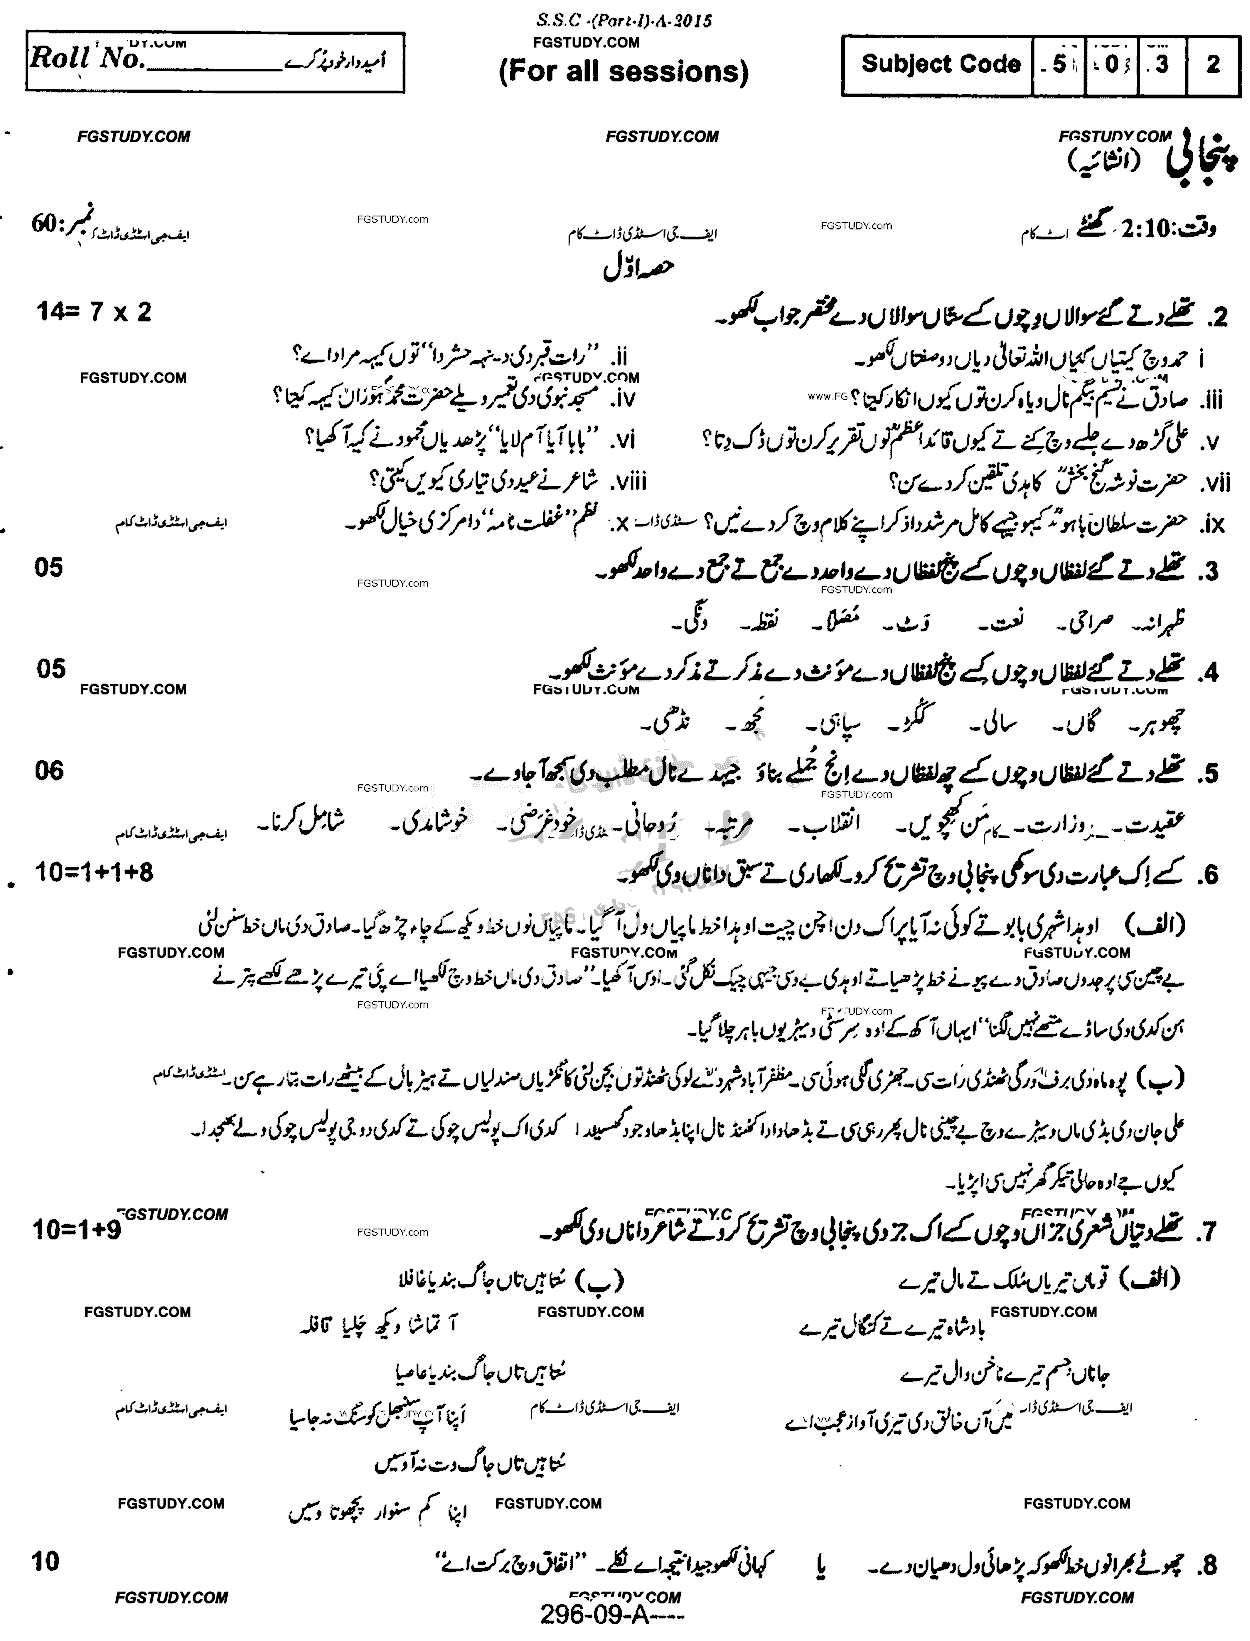 S.S.C -(Part-I)-A-2015
Roll No. امیدوار خود پُر کرے
FGSTUDY.COM
(For all sessions)
Subject Code 5 0 3 2
FGSTUDY.COM FGSTUDY.COM FGSTUDY.COM
پنجابی (انشائیہ)
وقت: 2:10 گھنٹے FGSTUDY.com ایف جی اسٹڈی ڈاٹ کام FGSTUDY.com ایف جی اسٹڈی ڈاٹ کام نمبر: 60
حصہ اوّل
2. تھلے دتے گئے سوالاں وچوں کے ستاں سوالاں دے مختصر جواب لکھو۔ 14= 7 x 2
i حمد وچ کیتیاں گئیاں اللہ تعالیٰ دیاں دو صفتاں لکھو۔ ii. ’’رات قبر دی دینہہ حشر دا‘‘ توں کیہہ مراد اے؟
FGSTUDY.COM FGSTUDY.COM
iii. صادق نے نسیم بیگم نال ویاہ کرن توں کیوں انکار کیتا؟ iv. مسجد نبوی دی تعمیر ویلے حضرت محمدؐ ہوراں کیہہ کیتا؟
v. علی گڑھ دے جلسے وچ کنے تے کیوں قائداعظمؒ نوں تقریر کرن توں ڈک دتا؟ vi. ’’بابا آیا آم لایا‘‘ پڑھدیاں محمود نے کیہ آکھیا؟
vii. حضرت نوشہ گنج بخشؒ کاہدی تلقین کردے سن؟ viii. شاعر نے عید دی تیاری کیویں کیتی؟
ix. حضرت سلطان باہوؒ کیہو جیہے کامل مرشد دا ذکر اپنے کلام وچ کردے نیں؟ x. نظم ’’غفلت نامہ‘‘ دا مرکزی خیال لکھو۔ ایف جی اسٹڈی ڈاٹ کام
3. تھلے دتے گئے لفظاں وچوں کے پنج لفظاں دے واحد دے جمع تے جمع دے واحد لکھو۔ 05
FGSTUDY.com FGSTUDY.com
ظہرانہ۔ صراحی۔ نعت۔ وَٹ۔ مُصَلّا۔ نقطہ۔ ونگی۔
4. تھلے دتے گئے لفظاں وچوں کے پنج لفظاں دے مؤنث دے مذکر تے مذکر دے مؤنث لکھو۔ 05
FGSTUDY.COM FGSTUDY.COM FGSTUDY.COM
چھوہر۔ گاں۔ سالی۔ ککڑ۔ سپاہی۔ مجھ۔ نڈھی۔
5. تھلے دتے گئے لفظاں وچوں کے چھ لفظاں دے انج جُملے بناؤ جیہدے نال مطلب دی سمجھ آ جاوے۔ 06
FGSTUDY.com FGSTUDY.com
عقیدت۔ وزارت۔ مَن کھچویں۔ انقلاب۔ مرتبہ۔ رُوحانی۔ خودغرضی۔ خوشامدی۔ شامِل کرنا۔ ایف جی اسٹڈی ڈاٹ کام
6. کے اِک عبارت دی سوکھی پنجابی وچ تشریح کرو۔ لکھاری تے سبق دا ناں وی لکھو۔ 10=1+1+8
(الف) اوہدا شہری بابو تے کوئی نہ آیا پر اک دن اچن چیت اوہدا خط ماپیاں ول آ گیا۔ ماپیاں نوں خط ویکھ کے چاء چڑھ گیا۔ صادق دی ماں خط سنن لئی
FGSTUDY.COM FGSTUDY.COM FGSTUDY.COM
بے چین سی پر جدوں صادق دے پیو نے خط پڑھیا تے اوہدی بے دسی جیہی چیک نکل گئی۔ اوس آکھیا۔ ’’صادق دی ماں خط وچ لکھیا اے پئی تیرے پڑھے لکھے پتر نے
FGSTUDY.com FGSTUDY.com
ہن کدی وی ساڈے متھے نہیں لگنا‘‘ ایہاں آکھ کے اوہ سِر سٹی ویہڑیوں باہر چلا گیا۔
(ب) پوہ ماہ دی برف ورگی ٹھنڈی رات سی۔ جھڑی لگی ہوئی سی۔ مظفر آباد شہر دے لوکی ٹھنڈ توں بچن لئی کانگڑیاں صندلیاں تے ہیٹر بال کے بیٹھے رات بتا رہے سن۔ اسٹڈی ڈاٹ کام
علی جان دی بڈی ماں ویہڑے وچ بے چینی نال پھر رہی سی تے بڈھا دادا کھنڈ نال اپنا بڈھا وجود گھسیٹدا کدی اک پولیس چوکی تے کدی دوجی پولیس چوکی ولے بھجدا۔
کیوں جے اوہ حالی تیکر گھر نہیں سی اپڑیا۔
FGSTUDY.COM
7. تھلے دتیاں شعری جزاں وچوں کے اک جز دی پنجابی وچ تشریح کرو تے شاعر دا ناں وی لکھو۔ FGSTUDY.com 10=1+9
(الف) توں ماں تیریاں مُلک تے مال تیرے (ب) سُتا ہیں تاں جاگ بندیا غافلا
FGSTUDY.COM FGSTUDY.COM FGSTUDY.COM
بادشاہ تیرے تے کنگال تیرے آ تماشا ویکھ چَلیا قافلہ
جاناں جسم تیرے ناخن وال تیرے سُتا ہیں تاں جاگ بندیا عاصیا
میں آں خالق دی تیری آواز عجب اے اَپنا آپ سنبھل کو سنگ نہ جاسیا
ایف جی اسٹڈی ڈاٹ کام ایف جی اسٹڈی ڈاٹ کام
سُتا ہیں تاں جاگ وت نہ آوسیں
FGSTUDY.COM FGSTUDY.COM FGSTUDY.COM
اپنا کم سنوار پچھوتا وسیں
8. چھوٹے بھرا نوں خط لکھو کہ پڑھائی ول دھیان دے۔ یا کہانی لکھو جیدا نتیجہ اے نکلے۔ ’’اتفاق وچ برکت اے‘‘ 10
FGSTUDY.COM FGSTUDY.COM FGSTUDY.COM
296-09-A----